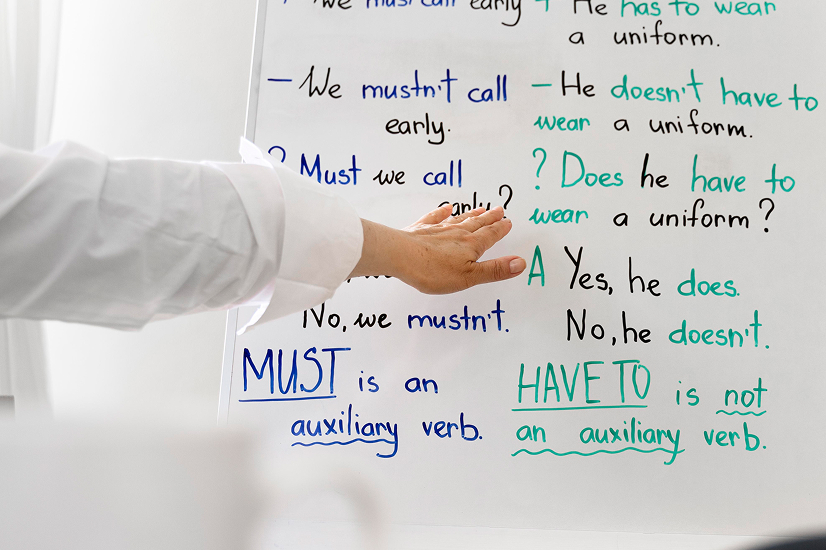 We must call early
– We mustn't call
early.
? Must we call
early?
No, we mustn't.
MUST is an
auxiliary verb.
+ He has to wear
a uniform.
– He doesn't have to
wear a uniform.
? Does he have to
wear a uniform?
A Yes, he does.
No, he doesn't.
HAVE TO is not
an auxiliary verb.